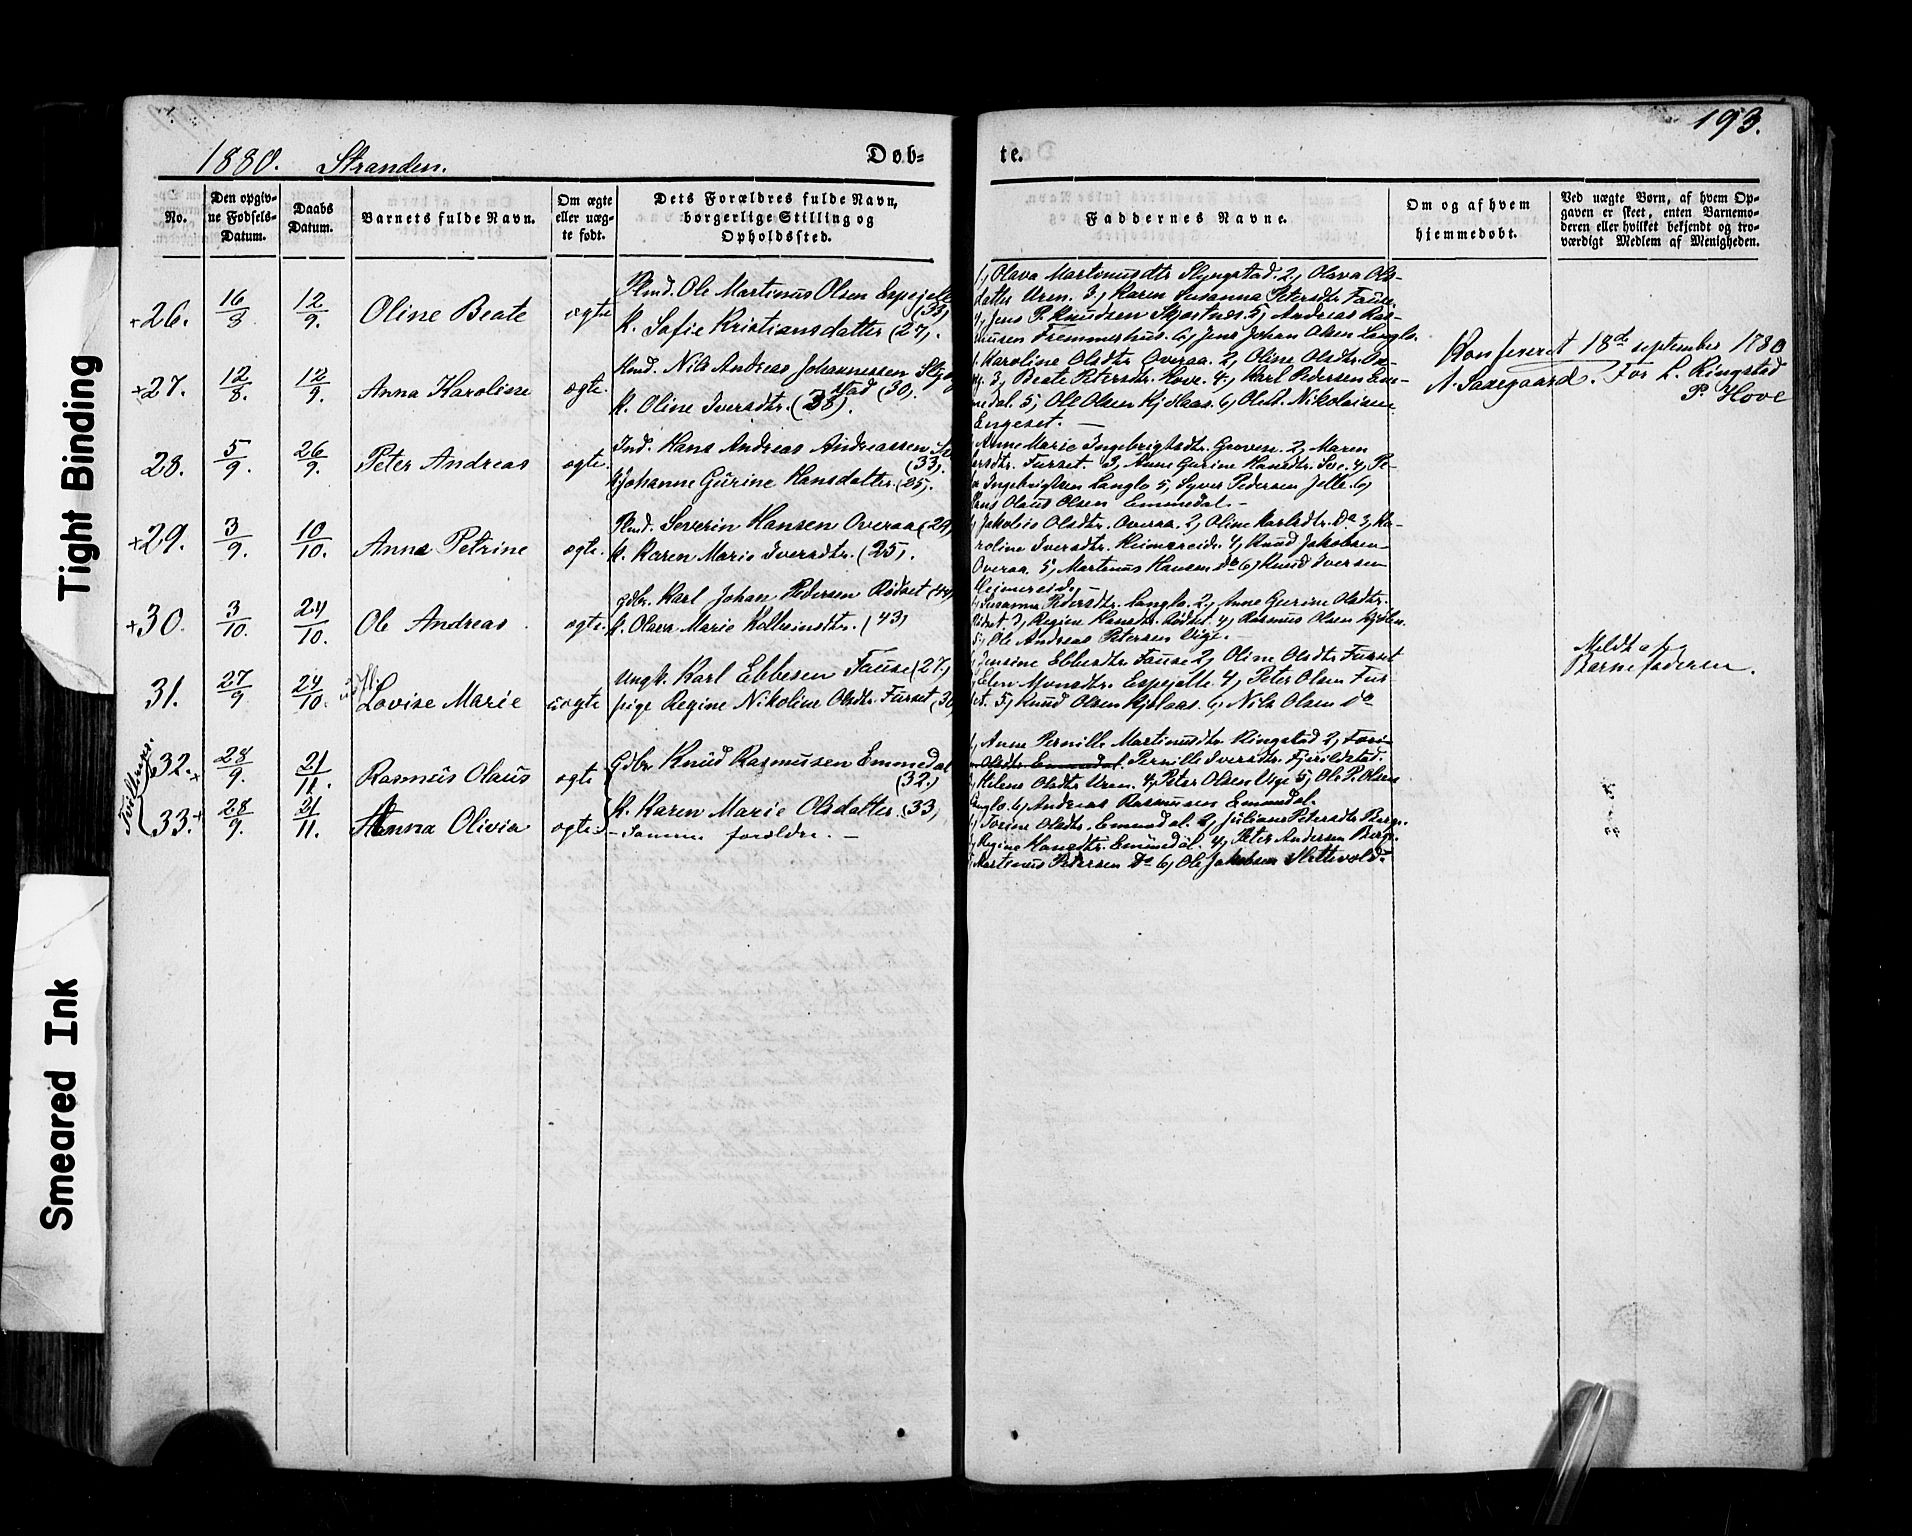 193.
1880. Stranden.
Døb= te.
No.
Den opgiv-
ne Fødsels-
Datum.
Daabs
Datum.
Barnets fulde Navn.
Om ægte
eller uæg-
te født.
Dets Forældres fulde Navn,
borgerlige Stilling og
Opholdssted.
Faddernes Navne.
Om og af hvem
hjemmedøbt.
Ved uægte Børn, af hvem Op-
gaven er skeet, enten Barnemo-
deren eller hvilket bekjendt og tro-
værdigt Medlem af Menigheden.
+26. 16/8 12/9. Oline Beate ægte
Ole Martinus Olsen Espejelle (33)
K. Sofie Kristiansdatter (27).
1, Olava Martinusdtr Slyngstad. 2, Olava Ols-
datter Uren. 3, Karen Susanna Petersdtr Fause.
4, Jens P. Knudsen 5, Andreas Ras-
musen Fremmerhus. 6, Jens Johan Olsen Langlo.
+27. 12/8. 12/9. Anna Karoline ægte.
Nils Andreas Johannessen
stad (30).
K. Oline Iversdtr. (38).
Karoline Olsdtr Overaa. 2, Oline Olsdtr. Ov-
3, Beate Petersdtr. Hove. 4, Karl Pedersen Em-
medal. 5, Ole Olsen Kjølaas. 6, Nikolaisen
Engeset. –
Konfereret 18de september 1880
A. Saxegaard. For L. Ringstad
P. Hove
28. 5/9. 26/9. Peter Andreas ægte.
Ind. Hans Andreas Andreassen
(33).
Johanne Gurine Hansdatter. (25).
Anne Marie Ingebrigtsdtr. Groven. 2, Maren
Furset. 3, Anne Gurine Hansdtr. Sve. 4, Pe-
Ingebrigtsen Langlo 5, Syver Pedersen Jelle. 6,
Hans Olaus Olsen Emmedal. –
+29. 3/9. 10/10. Anna Petrine ægte.
Severin Hansen Overaa (29)
K. Karen Marie Iversdtr. (25).
Olsdtr. Overaa. 2, Oline Karlsdtr. Do 3, Ka-
roline Iversdtr. Heimreide. 4, Knud Jakobsen
Overaa 5, Martinus Hansen Do 6, Knud Iversen
Heimreide –
+30. 3/10. 24/10. Ole Andreas. ægte.
Gdbr. Karl Johan Pedersen Rødset (44)
K. Olava Marie Kolbeinsdtr. (43)
Susanne Pedersdtr. Langlo. 2, Anne Gurine Olsdtr.
Rødset. 3, Regine Hansdtr. Rødset. 4, Rasmus Olsen
5, Ole Andreas Petersen Uige. –
31. 27/9 24/10. Lovise Marie uægte
Ungk. Karl Ebbesen Fause (27.)
pige Regine Nikoline Olsdtr. Furset (30)
Jensine Ebbesdtr. Fause 2, Oline Olsdtr Furset
3, Elen Monsdtr. Espejelle. 4, Peter Olsen Fur-
set. 5, Knud Olsen Kjølaas. 6, Nils Olsen Do
Meldt af
Barnefaderen.
Tvillinger.
32.+ 28/9. 21/11. Rasmus Olaus ægte
Gdbr. Knud Rasmusen Emmedal
(32.)
K. Karen Marie Olsdatter. (33)
1, Anne Pernille Martinusdtr. Ringstad 2,
Olsdtr. Emmedal. Pernille Iversdtr. Fjeildstad.
3, Helene Olsdtr Uren. 4, Peter Olsen Uge 5, Ole P. Olsen
Langlo. 6, Andreas Rasmusen Emmedal.
33.+ 28/9. 21/11. Anna Olivia ægte.
– Samme foreldre. –
1, Torine Olsdtr. Emmedal. 2, Juliane Petersdtr Berge.
3, Regine Hansdtr. Emmedal. 4, Peter Andersen Berge.
5, Martinus Petersen Do 6, Ole Jakobsen Slettevold.
Tight Binding
Smeared Ink